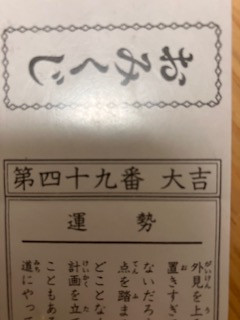 おみくじ
第四十九番 大吉
運勢
外見を上
置きすぎ
ないだろ
点を踏ま
どことな
計画を立
こともある
道にやっ